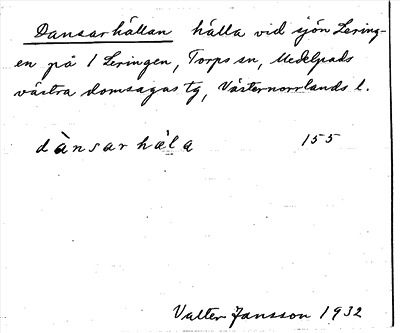 Dansarhällan hälla vid sjön Lering-
en på 1 Leringen, Torps sn, Medelpads
västra domsagas tg, Västernorrlands l.
dànsarhäla 155
Valter Jansson 1932